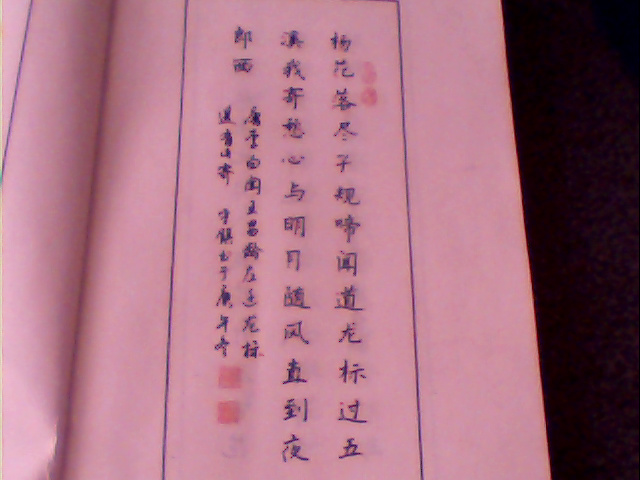 杨花落尽子规啼闻道龙标过五
溪我寄愁心与明月随风直到夜
郎西
唐李白闻王昌龄左迁龙标
遥有此寄 书于庚午冬